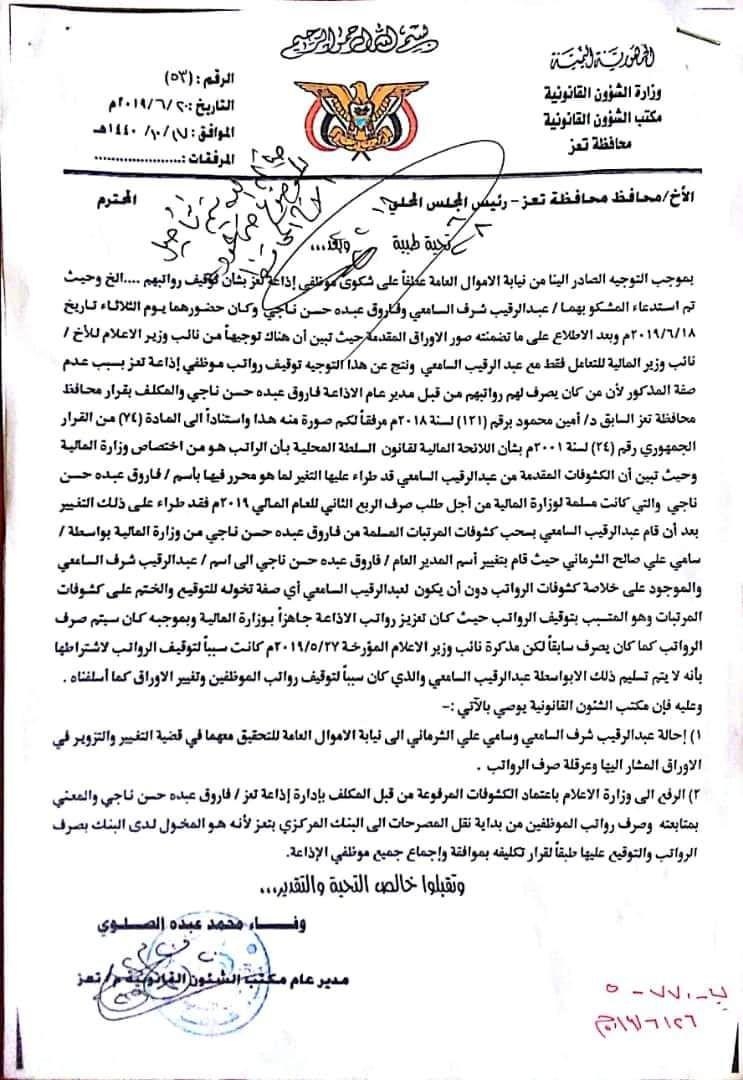 بسم الله الرحمن الرحيم
الجمهورية اليمنية
وزارة الشؤون القانونية
مكتب الشؤون القانونية
محافظة تعز
الرقم : (٥٣)
التاريخ : ٢٠١٩/٦/٢٠م
الموافق : ١٤٤٠/١٠/١٧هـ
المرفقات : ......................
الأخ/محافظ محافظة تعز - رئيس المجلس المحلي المحترم
تحية طيبة وبعد...
بموجب التوجيه الصادر الينا من نيابة الاموال العامة عطفاً على شكوى موظفي إذاعة تعز بشأن توقيف رواتبهم ....الخ وحيث
تم استدعاء المشكو بهما / عبدالرقيب شرف السامعي وفاروق عبده حسن ناجي وكان حضورهما يوم الثلاثاء تاريخ
٢٠١٩/٦/١٨م وبعد الاطلاع على ما تضمنته صور الاوراق المقدمة حيث تبين أن هناك توجيهاً من نائب وزير الاعلام للأخ /
نائب وزير المالية للتعامل فقط مع عبد الرقيب السامعي ونتج عن هذا التوجيه توقيف رواتب موظفي إذاعة تعز بسبب عدم
صفة المذكور لأن من كان يصرف لهم رواتبهم من قبل مدير عام الاذاعة فاروق عبده حسن ناجي والمكلف بقرار محافظ
محافظة تعز السابق د/ أمين محمود برقم (١٢١) لسنة ٢٠١٨م مرفقاً لكم صورة منه هذا واستناداً الى المادة (٧٤) من القرار
الجمهوري رقم (٢٤) لسنة ٢٠٠١م بشأن اللائحة المالية لقانون السلطة المحلية بأن الراتب هو من اختصاص وزارة المالية
وحيث تبين أن الكشوفات المقدمة من عبدالرقيب السامعي قد طراء عليها التغير لما هو محرر فيها بأسم / فاروق عبده حسن
ناجي والتي كانت مسلمة لوزارة المالية من أجل طلب صرف الربع الثاني للعام المالي ٢٠١٩م فقد طراء على ذلك التغيير
بعد أن قام عبدالرقيب السامعي بسحب كشوفات المرتبات المسلمة من فاروق عبده حسن ناجي من وزارة المالية بواسطة /
سامي علي صالح الشرماني حيث قام بتغيير أسم المدير العام / فاروق عبده حسن ناجي الى اسم / عبدالرقيب شرف السامعي
والموجود على خلاصة كشوفات الرواتب دون أن يكون لعبدالرقيب السامعي أي صفة تخوله للتوقيع والختم على كشوفات
المرتبات وهو المتسبب بتوقيف الرواتب حيث كان تعزيز رواتب الاذاعة جاهزاً بوزارة المالية وبموجبه كان سيتم صرف
الرواتب كما كان يصرف سابقاً لكن مذكرة نائب وزير الاعلام المؤرخة ٢٠١٩/٥/٢٧م كانت سبباً لتوقيف الرواتب لاشتراطها
بأنه لا يتم تسليم ذلك الابواسطة عبدالرقيب السامعي والذي كان سبباً لتوقيف رواتب الموظفين وتغيير الاوراق كما أسلفناه .
وعليه فإن مكتب الشئون القانونية يوصي بالآتي :-
١) إحالة عبدالرقيب شرف السامعي وسامي علي الشرماني الى نيابة الاموال العامة للتحقيق معهما في قضية التغيير والتزوير في
الاوراق المشار اليها وعرقلة صرف الرواتب .
٢) الرفع الى وزارة الاعلام باعتماد الكشوفات المرفوعة من قبل المكلف بإدارة إذاعة تعز / فاروق عبده حسن ناجي والمعني
بمتابعته وصرف رواتب الموظفين من بداية نقل المصرحات الى البنك المركزي بتعز لأنه هو المخول لدى البنك بصرف
الرواتب والتوقيع عليها طبقاً لقرار تكليفه بموافقة وإجماع جميع موظفي الإذاعة.
وتقبلوا خالص التحية والتقدير...
وفـــاء محمد عبده الصلـوي
مدير عام مكتب الشئون القانونية م/ تعز